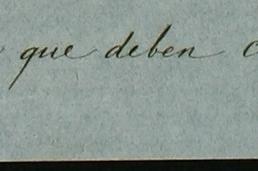 que deben